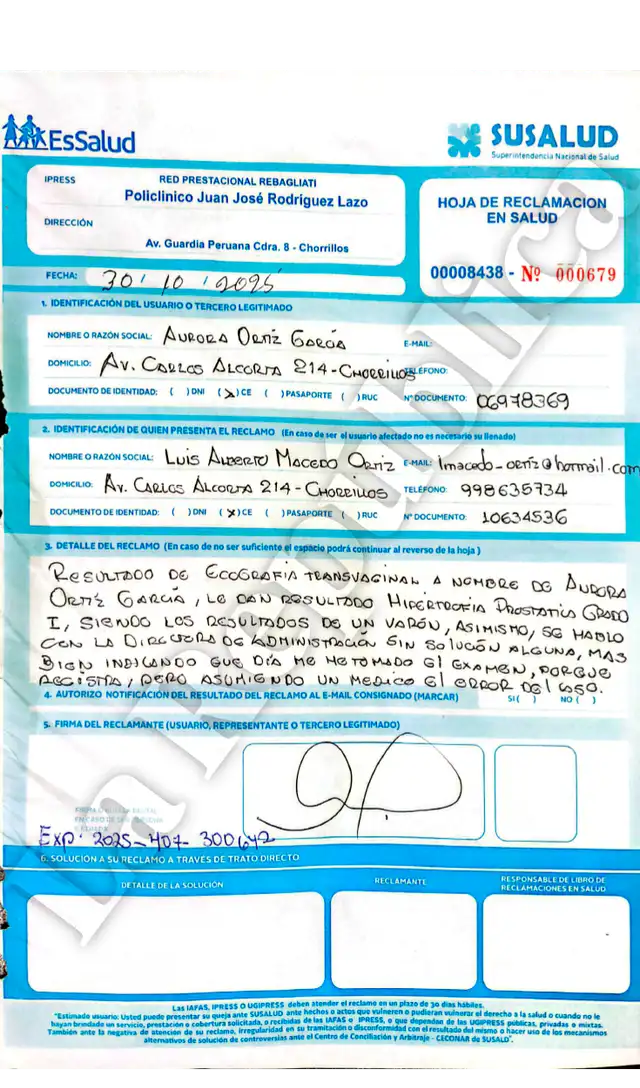 EsSalud
SUSALUD
Superintendencia Nacional de Salud
IPRESS
RED PRESTACIONAL REBAGLIATI
Policlinico Juan José Rodríguez Lazo
DIRECCIÓN
Av. Guardia Peruana Cdra. 8 - Chorrillos
HOJA DE RECLAMACION
EN SALUD
00008438 - Nº 000679
FECHA: 30 / 10 / 2025
1. IDENTIFICACIÓN DEL USUARIO O TERCERO LEGITIMADO
NOMBRE O RAZÓN SOCIAL: AURORA ORTIZ GARCÍA E-MAIL:
DOMICILIO: AV. CARLOS ALCORTA 214-CHORRILLOS TELÉFONO:
DOCUMENTO DE IDENTIDAD: ( ) DNI (X) CE ( ) PASAPORTE ( ) RUC Nº DOCUMENTO: 06978369
2. IDENTIFICACIÓN DE QUIEN PRESENTA EL RECLAMO (En caso de ser el usuario afectado no es necesario su llenado)
NOMBRE O RAZÓN SOCIAL: LUIS ALBERTO MACEDO ORTIZ E-MAIL: lmacedo-ortiz@hotmail.com
DOMICILIO: AV. CARLOS ALCORTA 214-CHORRILLOS TELÉFONO: 998635734
DOCUMENTO DE IDENTIDAD: ( ) DNI (X) CE ( ) PASAPORTE ( ) RUC Nº DOCUMENTO: 10634536
3. DETALLE DEL RECLAMO (En caso de no ser suficiente el espacio podrá continuar al reverso de la hoja)
RESULTADO DE ECOGRAFÍA TRANSVAGINAL A NOMBRE DE AURORA
ORTIZ GARCÍA, LE DAN RESULTADO HIPERTROFIA PROSTATICA GRADO
I, SIENDO LOS RESULTADOS DE UN VARÓN, ASIMISMO, SE HABLO
CON LA DIRECTORA DE ADMINISTRACIÓN SIN SOLUCIÓN ALGUNA, MAS
BIEN INDICANDO QUE DÍA ME HE TOMADO El EXAMEN, PORQUE
REGISTRA, PERO ASUMIENDO UN MEDICO El ERROR DEl CASO.
4. AUTORIZO NOTIFICACIÓN DEL RESULTADO DEL RECLAMO AL E-MAIL CONSIGNADO (MARCAR) SI ( ) NO ( )
5. FIRMA DEL RECLAMANTE (USUARIO, REPRESENTANTE O TERCERO LEGITIMADO)
Exp. 2025-407-300642
6. SOLUCIÓN A SU RECLAMO A TRAVES DE TRATO DIRECTO
DETALLE DE LA SOLUCIÓN
RECLAMANTE
RESPONSABLE DE LIBRO DE
RECLAMACIONES EN SALUD
Las IAFAS, IPRESS O UGIPRESS deben atender el reclamo en un plazo de 30 días hábiles.
"Estimado usuario: Usted puede presentar su queja ante SUSALUD ante hechos o actos que vulneren o pudieran vulnerar el derecho a la salud o cuando no le
hayan brindado un servicio, prestación o cobertura solicitada, o recibidas de las IAFAS o IPRESS, o que dependan de las UGIPRESS públicas, privadas o mixtas.
También ante la negativa de atención de su reclamo, irregularidad en su tramitación o disconformidad con el resultado del mismo o hacer uso de los mecanismos
alternativos de solución de controversias ante el Centro de Conciliación y Arbitraje - CECONAR de SUSALD".
La República